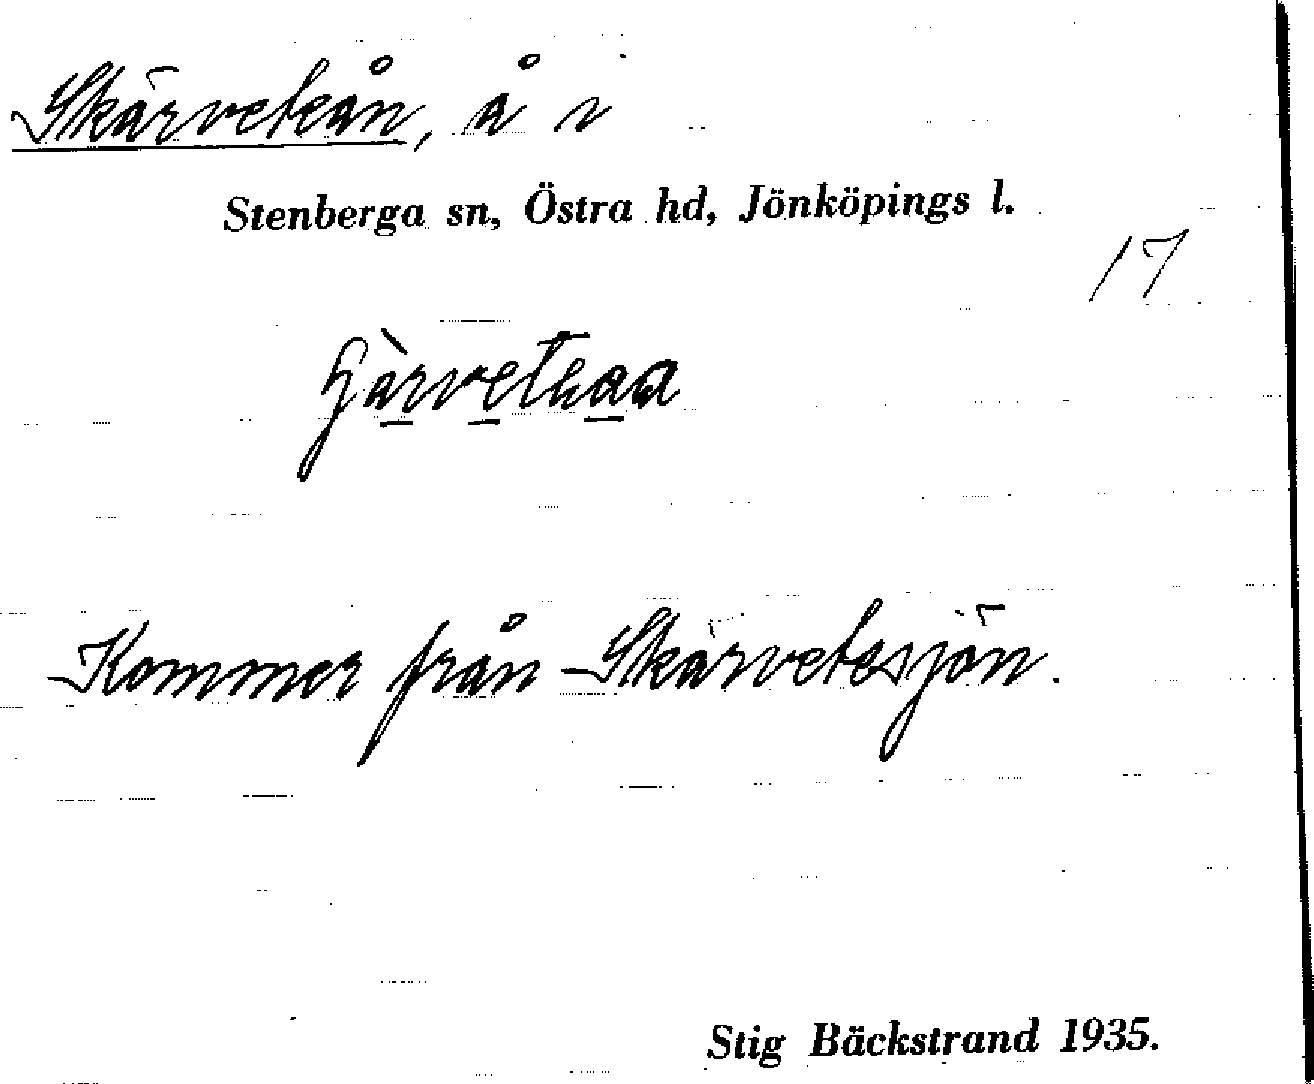 Skärveteån, å i
Stenberga sn, Östra hd, Jönköpings l.
17
Kommer från Skärvetesjön.
Stig Bäckstrand 1935.